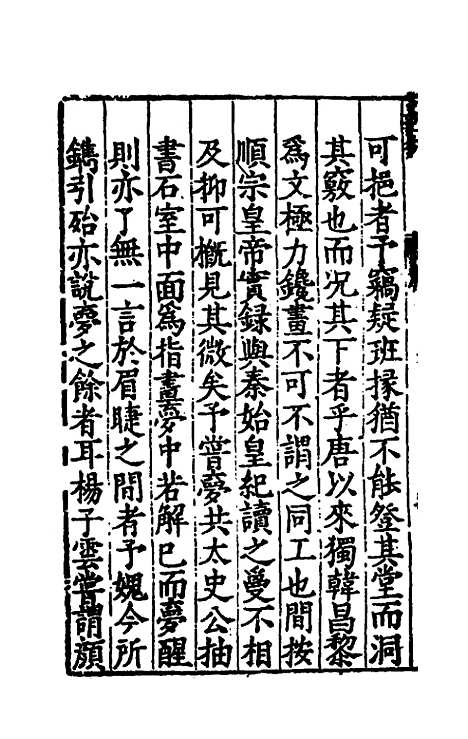 可挹者予竊疑班掾猶不能登其堂而洞
其竅也而况其下者乎唐以來獨韓昌黎
爲文極力鑱畫不可不謂之同工也間按
順宗皇帝實録與秦始皇紀讀之戞不相
及抑可概見其微矣予嘗夢共太史公抽
書石室中面爲指畫夢中若解已而夢醒
則亦了無一言於眉睫之間者予媿今所
鐫引殆亦說夢之餘者耳楊子雲嘗謂顔